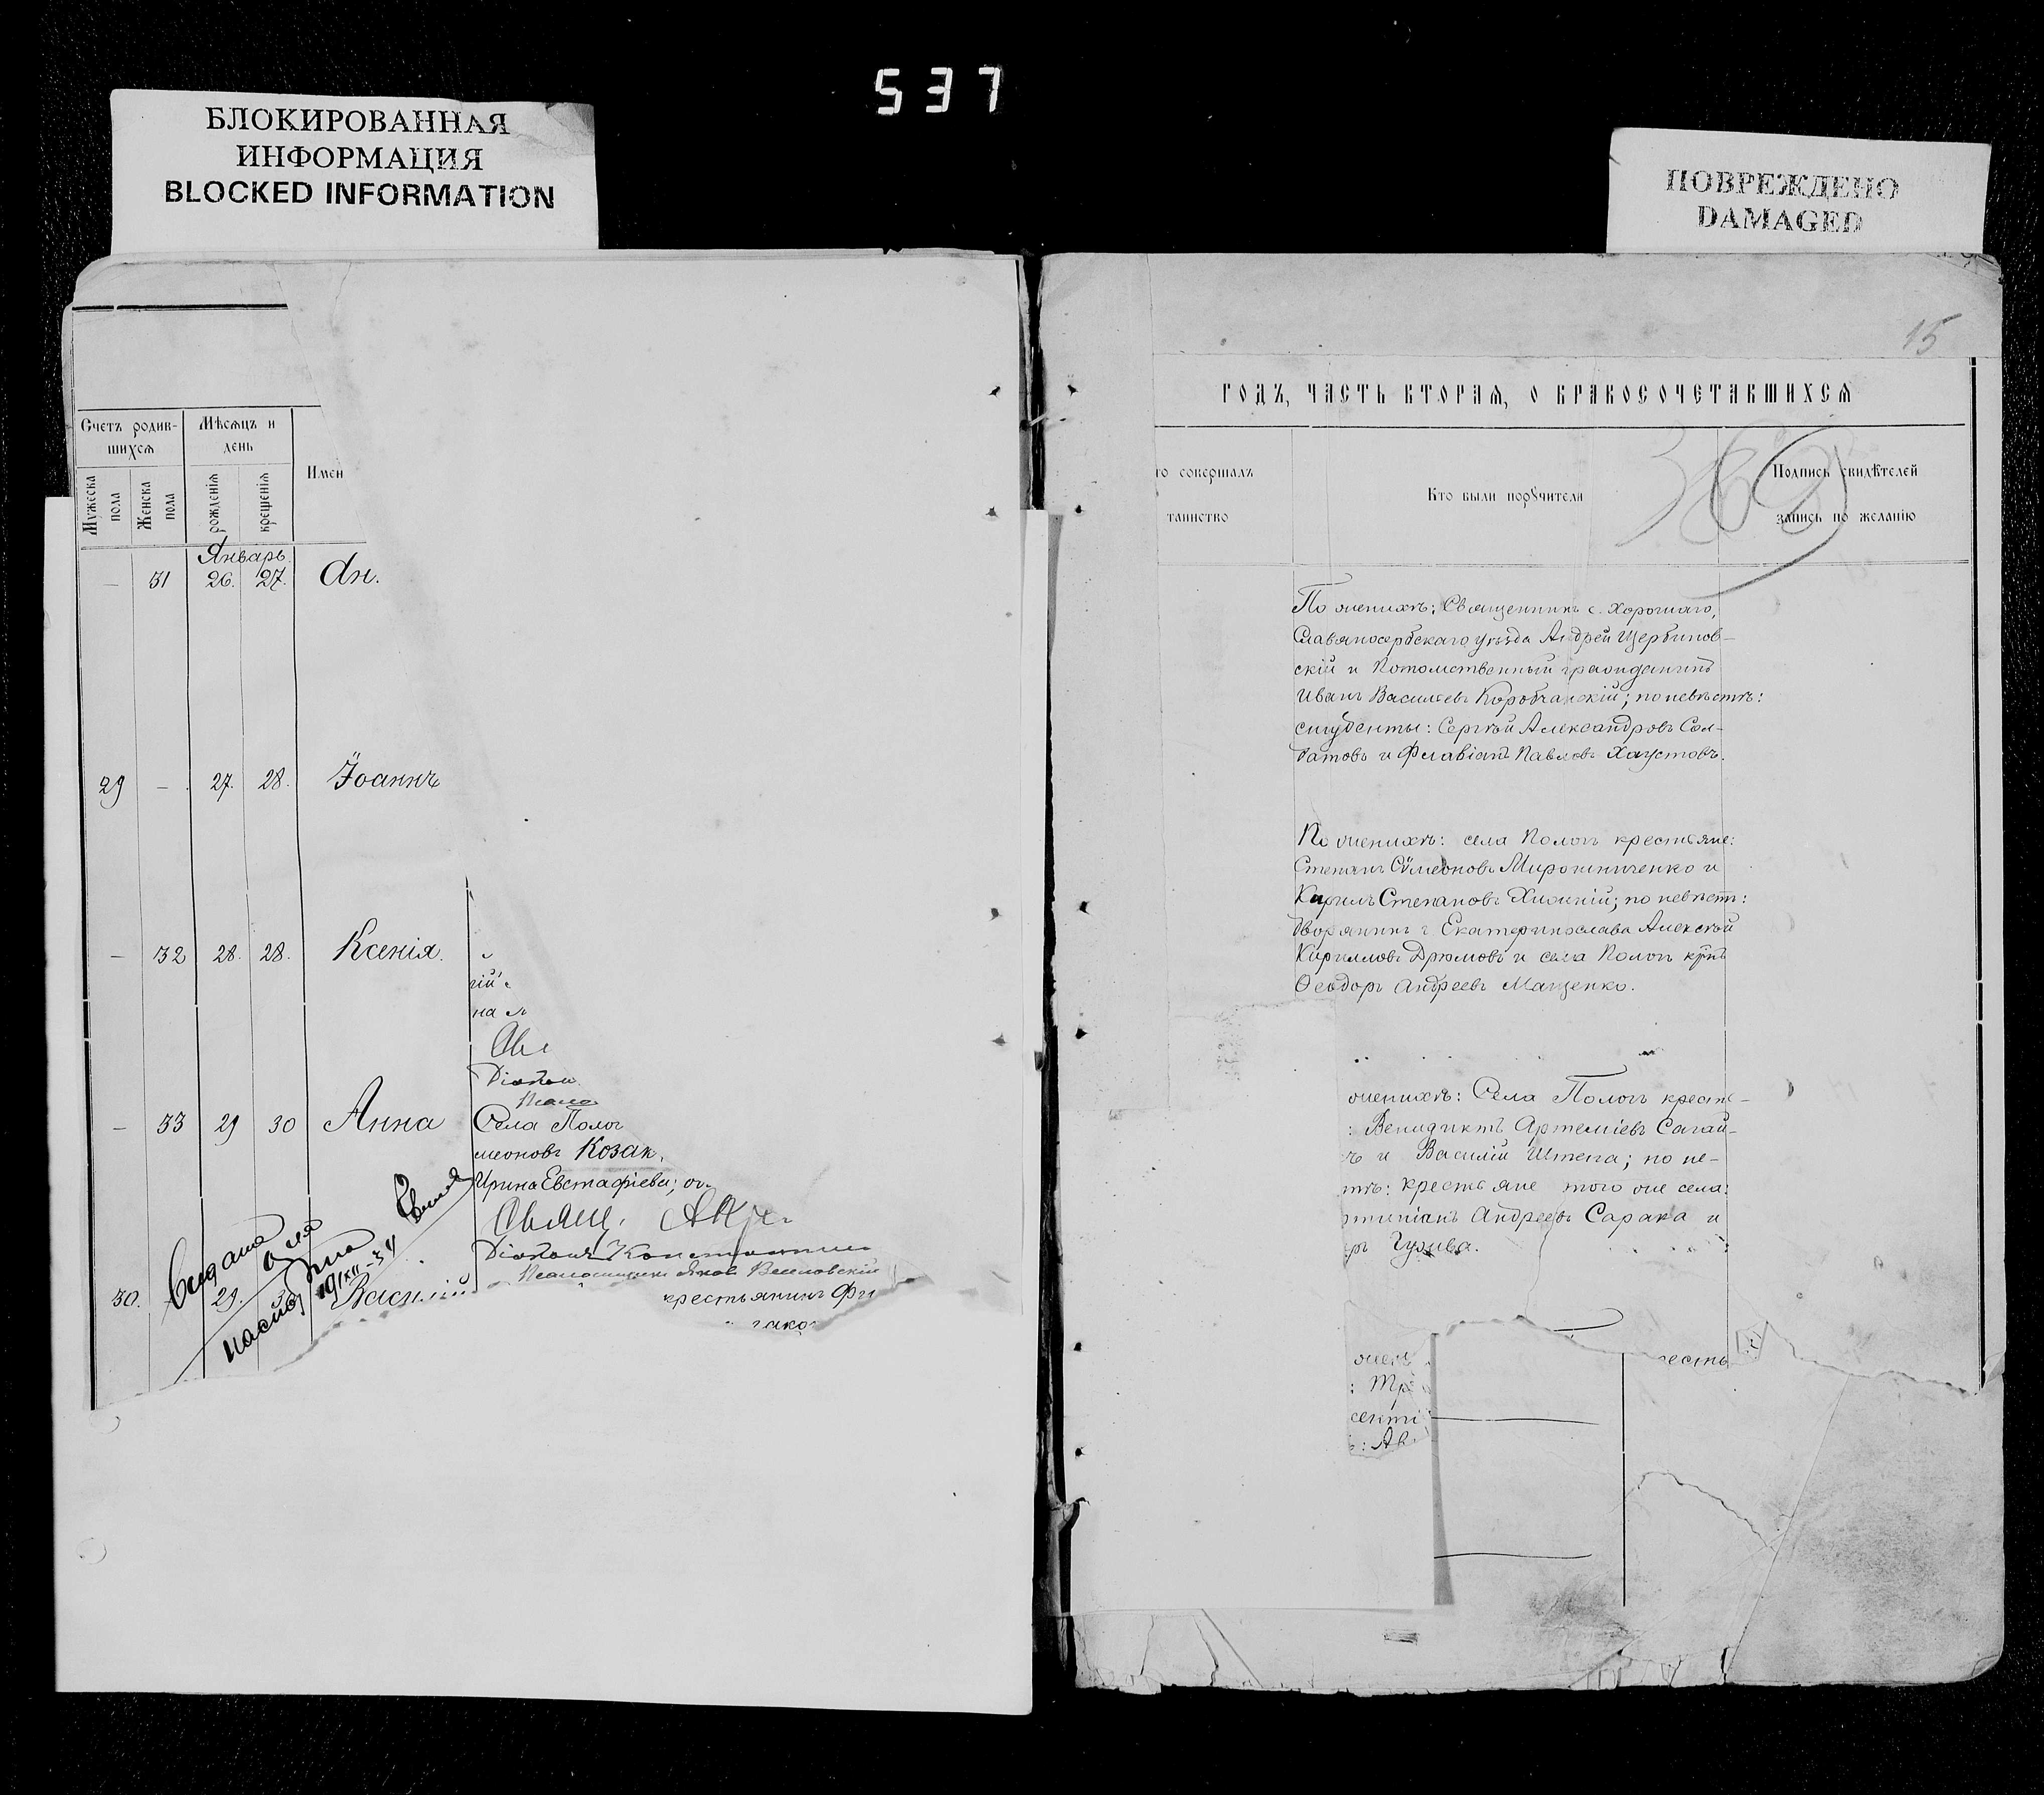 537
БЛОКИРОВАННАЯ
ИНФОРМАЦИЯ
BLOCKED INFORMATION
ПОВРЕЖДЕНО
DAMAGED
Счетъ родив-
шихся
Мѣсяцъ и
день
Мужеска
пола
Женска
пола
рожденія
крещенія
Имен
Январь
— 31 26. 27. Ан.
29 — 27. 28. Іоаннъ
— 32 28. 28. Ксенія.
гій
на
Діакон
— 33 29 30 Анна Села Пологъ
меоновъ Козак
Ирина Евстафіева;
Свящ.
Діаконъ Константин
Псаломщикъ Яковъ
30. 29. 30 Василій
крестьянинъ
15
годъ, часть вторая, о бракосочетавшихся
то совершалъ
таинство
Кто были поручители
Подпись свидѣтелей
запись по желанію
По женихѣ: Священникъ с. Хорошаго,
Славяносербскаго уѣзда Андрей Щербинов-
скій и Потомственный гражданинъ
Иванъ Васильевъ Коробчанскій; по невѣстѣ:
студенты: Сергѣй Александровъ Сол-
датовъ и Флавіанъ Павловъ Хаустовъ.
По женихѣ: села Пологъ крестьяне:
Степанъ Сѵмеоновъ Мирошниченко и
Кирилъ Степановъ Хижній; по невѣст:
дворянинъ г. Екатеринослава Алексѣй
Кирилловъ Дрюмовъ и села Пологъ
Ѳеодоръ Андреевъ Мащенко.
женихѣ: Села Пологъ кресть-
: Венидиктъ Артеміевъ Сагай-
ъ и Василій Штепа; по не-
тѣ: крестьяне того же села:
Андреевъ Сарака и
ръ Гужва.
жен
есть
: Тр
сенті
: Ав